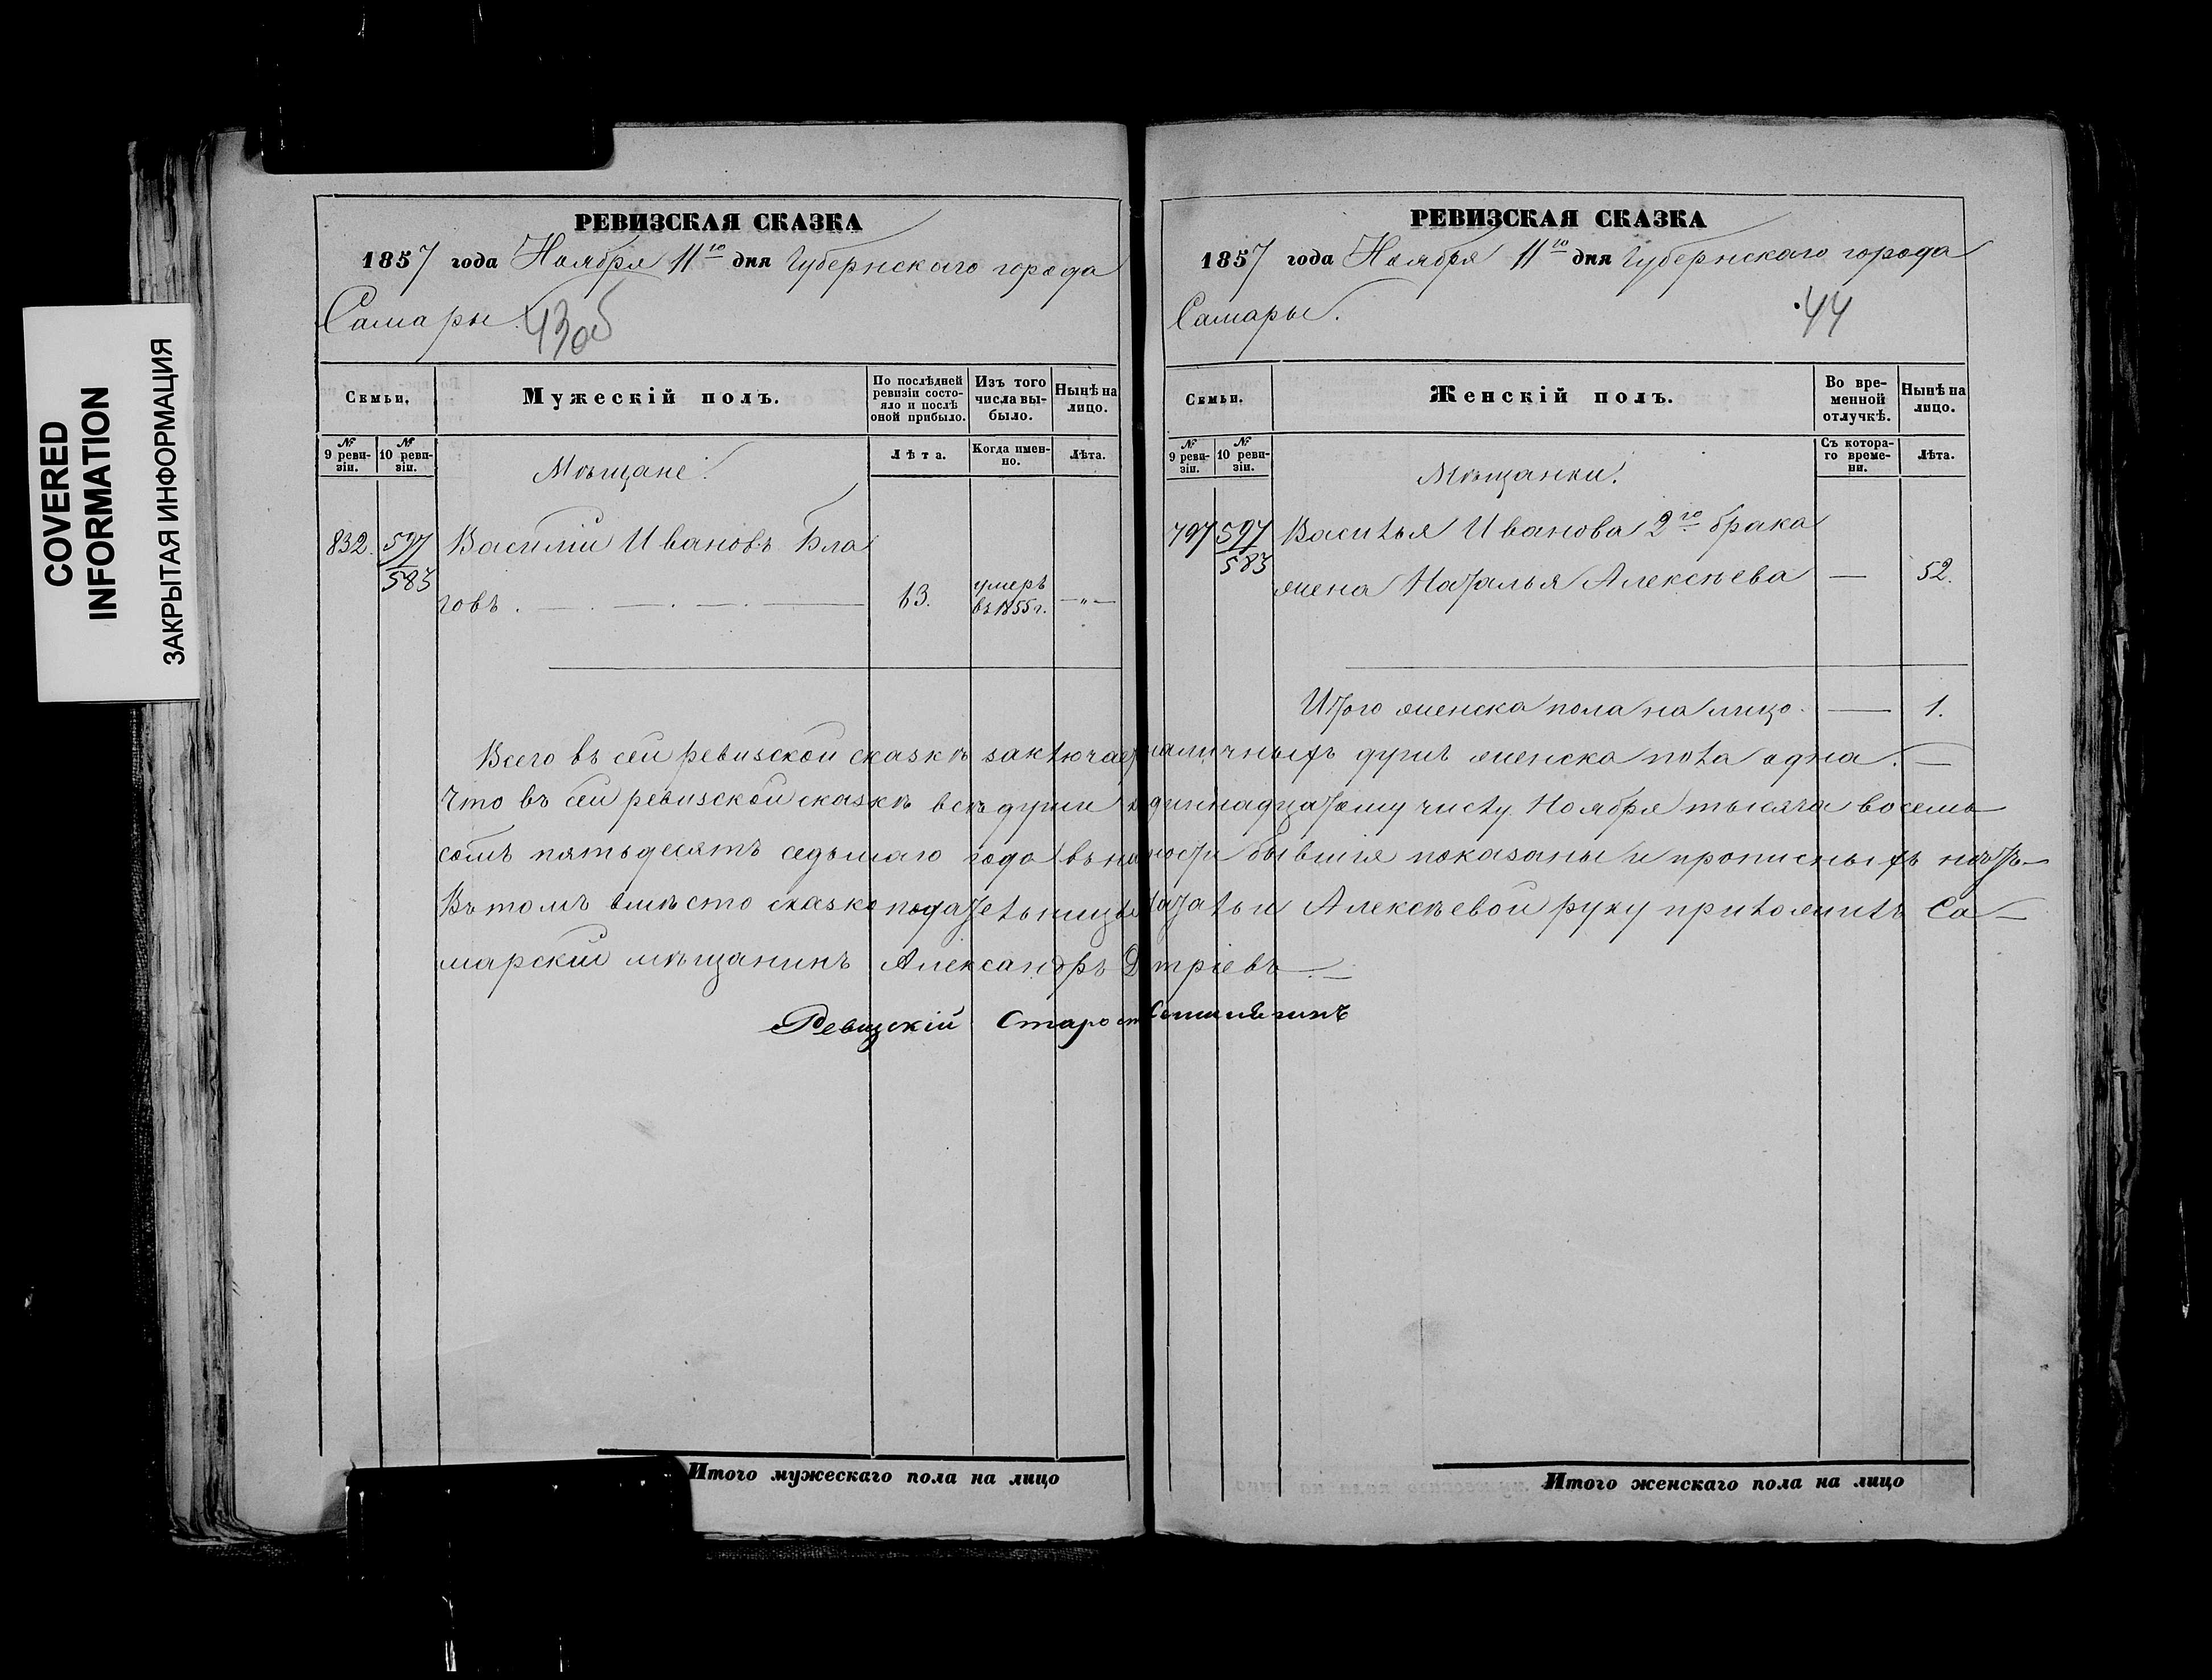 COVERED
INFORMATION
ЗАКРЫТАЯ ИНФОРМАЦИЯ
РЕВИЗСКАЯ СКАЗКА
1857 года Ноября 11го дня Губернскаго города
Самары. 43об
Семьи.
Мужескій полъ.
По послѣдней
ревизіи состо-
яло и послѣ
оной прибыло.
Изъ того
числа вы-
было.
Нынѣ на
лицо.
№
9 реви-
зіи.
№
10 реви-
зіи.
Мѣщане.
Лѣта.
Когда имен-
но.
Лѣта.
832. 597 Василій Ивановъ Бла
583
говъ. 63. умеръ
въ 1855 г. —„—
РЕВИЗСКАЯ СКАЗКА
1857 года Ноября 11го дня Губернскаго города
Самары. 44
Семьи.
Женскій полъ.
Во вре-
менной
отлучкѣ.
Нынѣ на
лицо.
№
9 реви-
зіи.
№
10 реви-
зіи.
Мѣщанки.
Съ котора-
го време-
ни.
Лѣта.
797 597 Василья Иванова 2го брака
583 жена Наталья Алексѣева — 52.
Итого женска пола на лицо — 1.
Всего въ сей ревизской сказкѣ заключает наличныхъ душъ женска пола одна. —
Что въ сей ревизской сказкѣ всѣ души динннадцатому числу Ноября тысяча восемь
сомъ пятьдесятъ седьмаго года въ ности бывшія показаны и прописныхъ нѣтъ —
Въ томъ вмѣсто сказко подательницы Натальи Алексѣевой руку приложилъ Са-
марскій мѣщанинъ Александръ Д тріевъ. —
Ревизскій Старост
Итого мужескаго пола на лицо
Итого женскаго пола на лицо